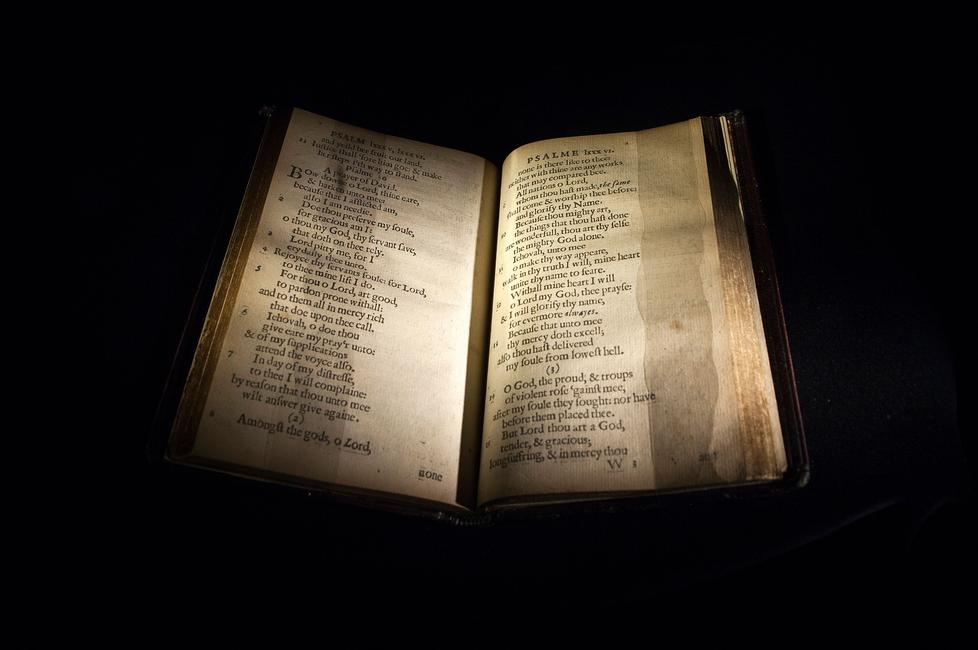 PSALM lxxx v, lxxx vi.
and yeild her fruit our land.
Iustice shall 'fore him goe; & make
her steps i'th way to stand.
Psalme 86
A prayer of David.
1 BOw downe o Lord, thine eare,
& harken unto mee:
because that I afflicted am,
also I am needie.
2 Doe thou preserve my soule,
for gracious am I:
o thou my God, thy servant save,
that doth on thee rely.
3 Lord pitty me, for I
cry dayly thee unto.
4 Rejoyce thy servants soule: for Lord,
to thee mine lift I do.
5 For thou o Lord, art good,
to pardon prone withall:
and to them all in mercy rich
that doe upon thee call.
6 Iehovah, o doe thou
give eare my pray'r unto:
& of my supplications
attend the voyce also.
7 In day of my distresse,
to thee I will complaine:
by reason that thou unto mee
wilt answer give againe.
(2)
8 Amongst the gods, o Lord,
none
PSALME lxxx vi.
none is there like to thee:
neither with thine are any works
that may compared bee.
All nations o Lord,
whom thou hast made, the same
shall come & worship thee before:
and glorify thy Name.
10 Because thou mighty art,
the things that thou hast done
are wonderfull, thou art thy selfe
the mighty God alone.
11 Iehovah, unto mee
o make thy way appeare,
walk in thy truth I will; mine heart
unite thy name to feare.
12 Withall mine heart I will
o Lord my God, thee prayse:
& I will glorify thy name,
for evermore alwayes.
Because that unto mee
thy mercy doth excell;
also thou hast delivered
my soule from lowest hell.
(3)
14 O God, the proud, & troups
of violent rose 'gainst mee,
after my soule they sought: nor have
before them placed thee.
15 But Lord thou art a God,
tender, & gracious;
longsuffring, & in mercy thou
W 3